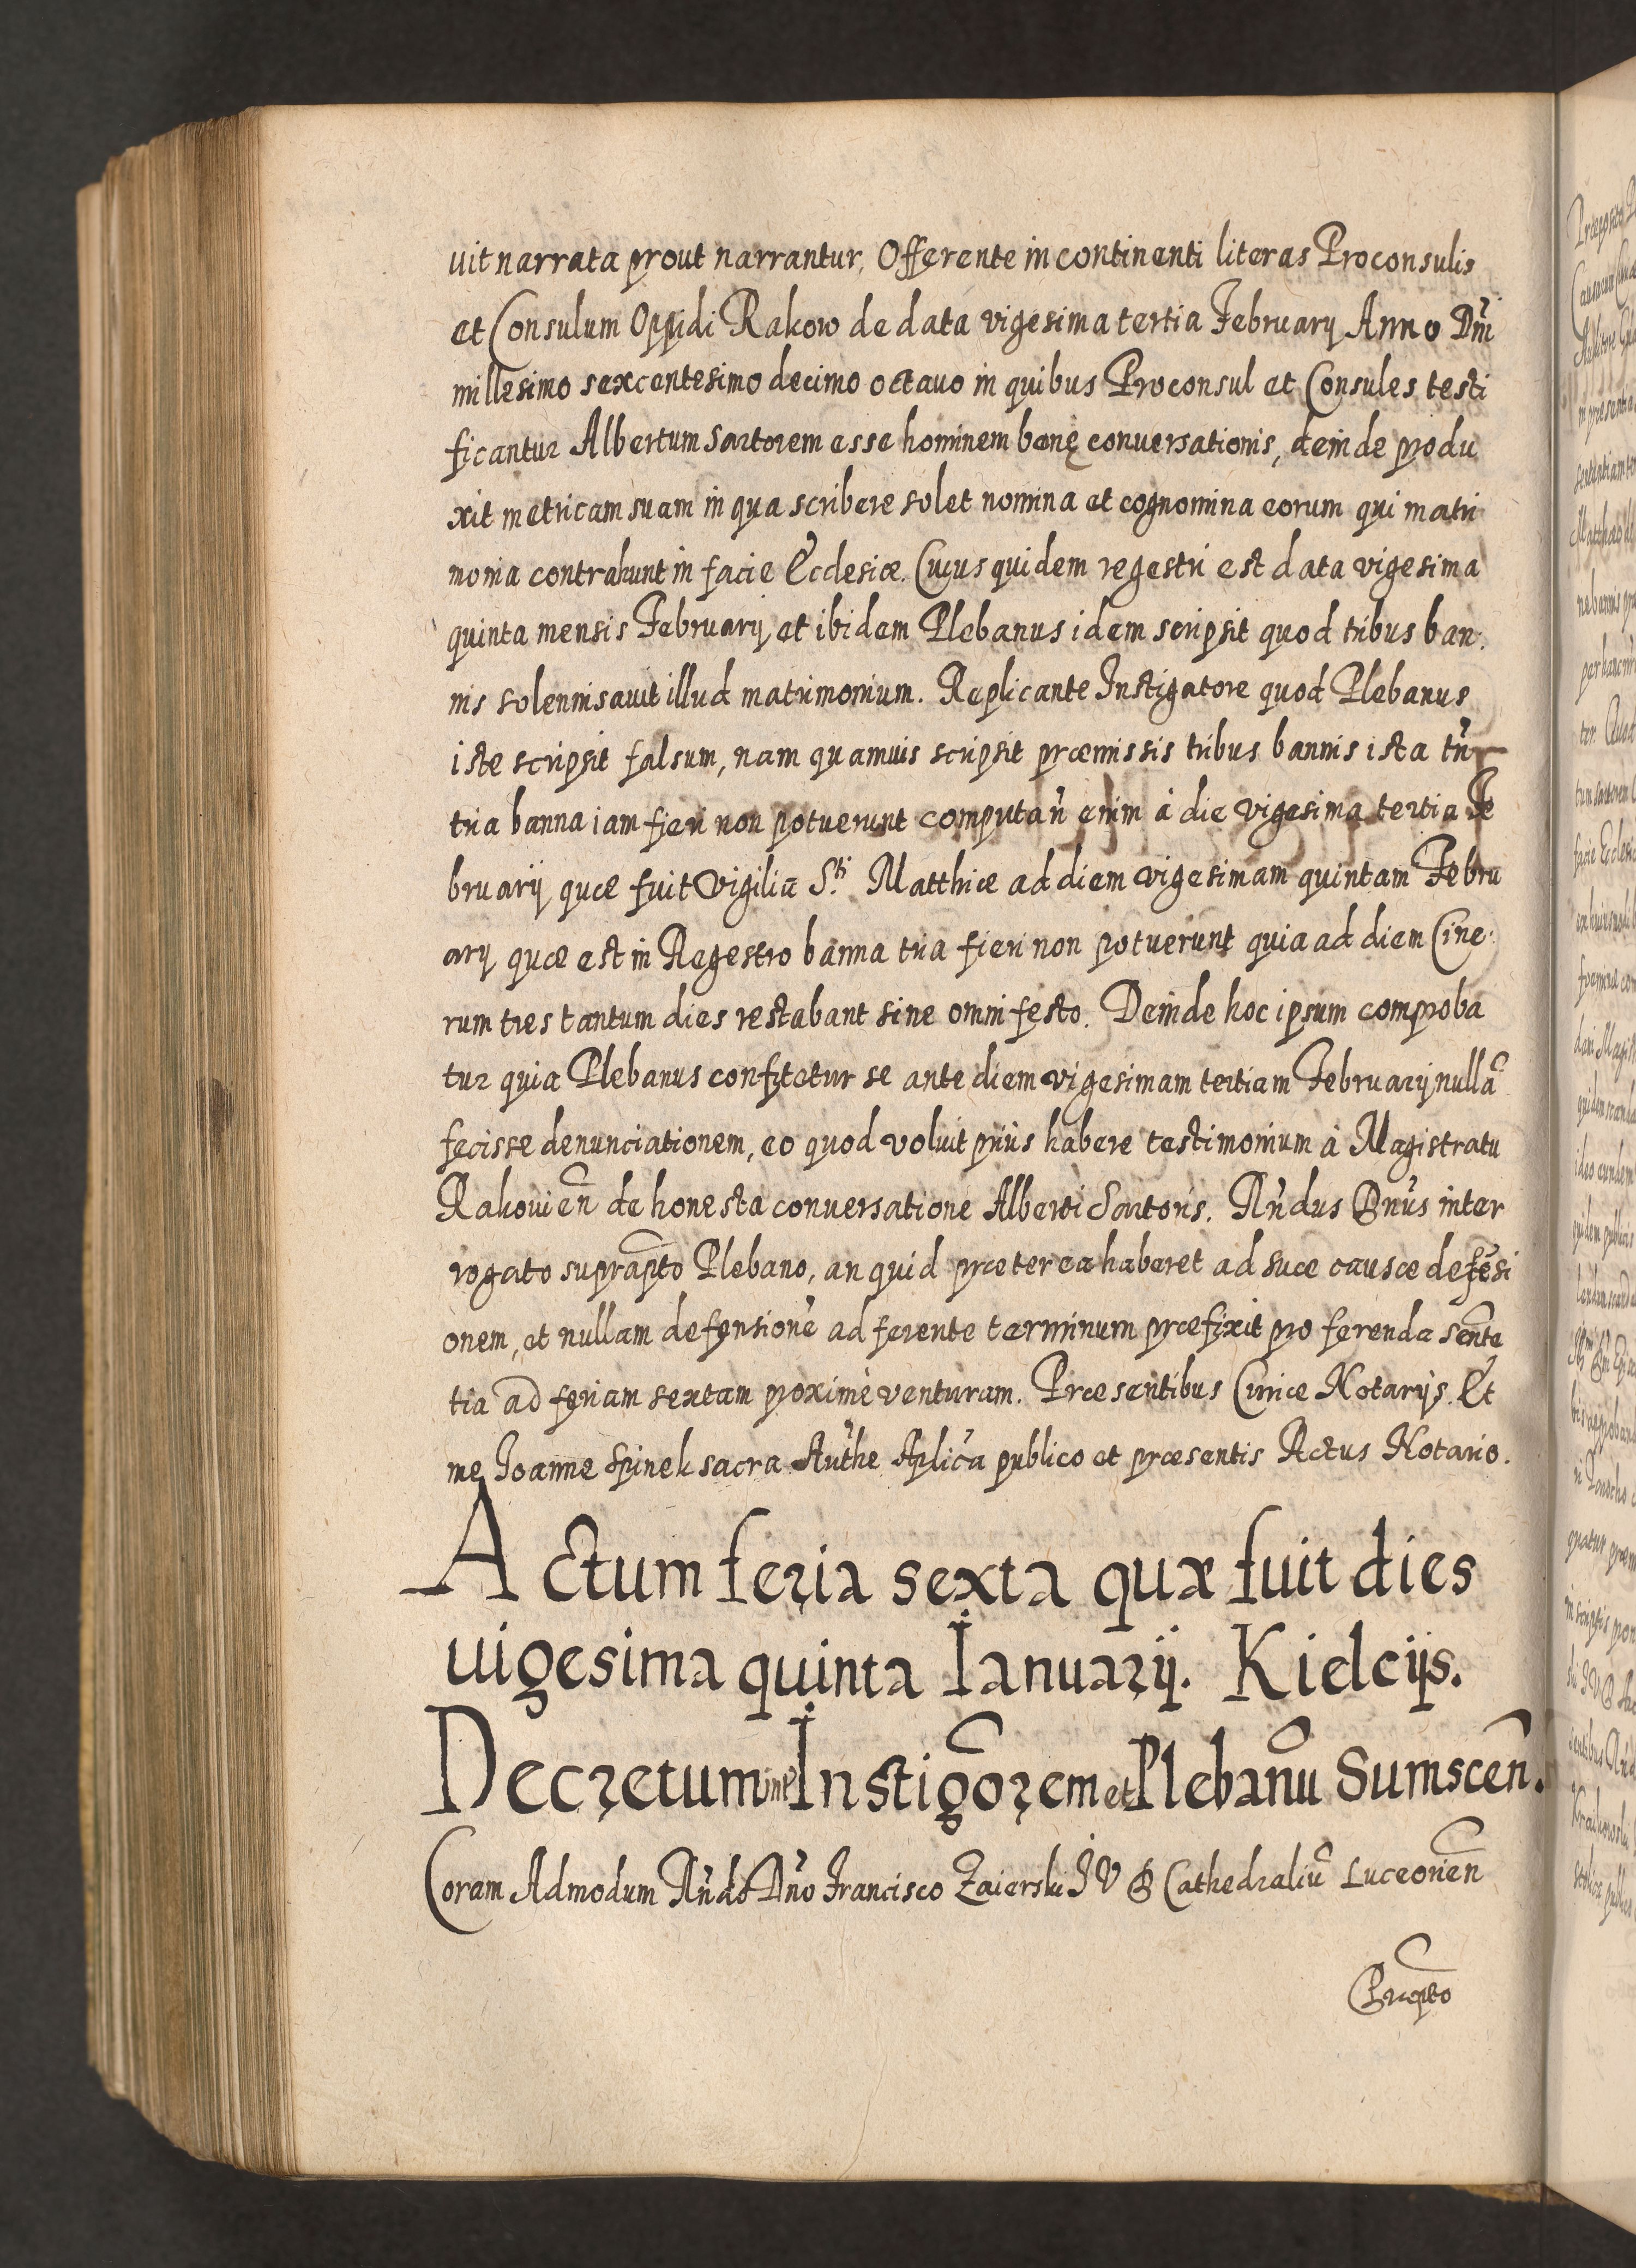 uit narrata prout narrantur, Offerente in continenti literas Proconsulis
et Consulum Oppidi Rakow de data vigesima tertia Februarij Anno Dni̅
millesimo sexcentesimo decimo octauo in quibus Proconsul et Consules testi
ficantur Albertum Sartorem esse hominem bonę conuersationis, deinde produ
xit metricam suam in qua scribere solet nomina et cognomina eorum qui matri
monia contrahunt in facie Ecclesiæ. Cuius quidem regestri est data vigesima
quinta mensis Februarij, et ibidem Plebanus idem scripsit quod tribus ban:
nis solennisauit illud matrimonium. Replicante Instigatore quod Plebanus
iste scripsit falsum, nam quamuis scripsit præmissis tribus bannis ista tn̅
tria banna iam fieri non potuerunt computan̅ enim à die vigesima tertia Fe
bruarij quæ fuit Vigilia S.ti Matthiæ ad diem vigesimam quintam Febru
arij quæ est in Regestro banna tria fieri non potuerunt quia ad diem Cine:
rum tres tantum dies restabant sine omni festo. Deinde hoc ipsum comproba
tur quia Plebanus confitetur se ante diem vigesimam tertiam Februarij nullā
fecisse denunciationem, eo quod voluit priùs habere testimonium à Magistratu
Rakouien̅ de honesta conuersatione Alberti Sartoris. Rn̅dus Dn̅us inter
rogato suprapto̅ Plebano, an quid præterea haberet ad suæ causæ defēsi
onem, et nullam defensionē adferente terminum præfixit pro ferenda senten̅
tia ad feriam sextam proximè venturam. Præsentibus Curiæ Notarijs. Et
me Joanne Spinek sacra Authē Aplica̅ publico et præsentis Actus Notario.
Actum feria sexta quæ fuit dies
uigesima quinta Ianuarij. Kielcijs.
Decretum int̅ Instigo̅rem et Plebanu̅ Sumscen̅.
Coram Admodum Rn̅do Dn̅o Francisco Zaierski J V D Cathedraliu̅ Luceorien̅